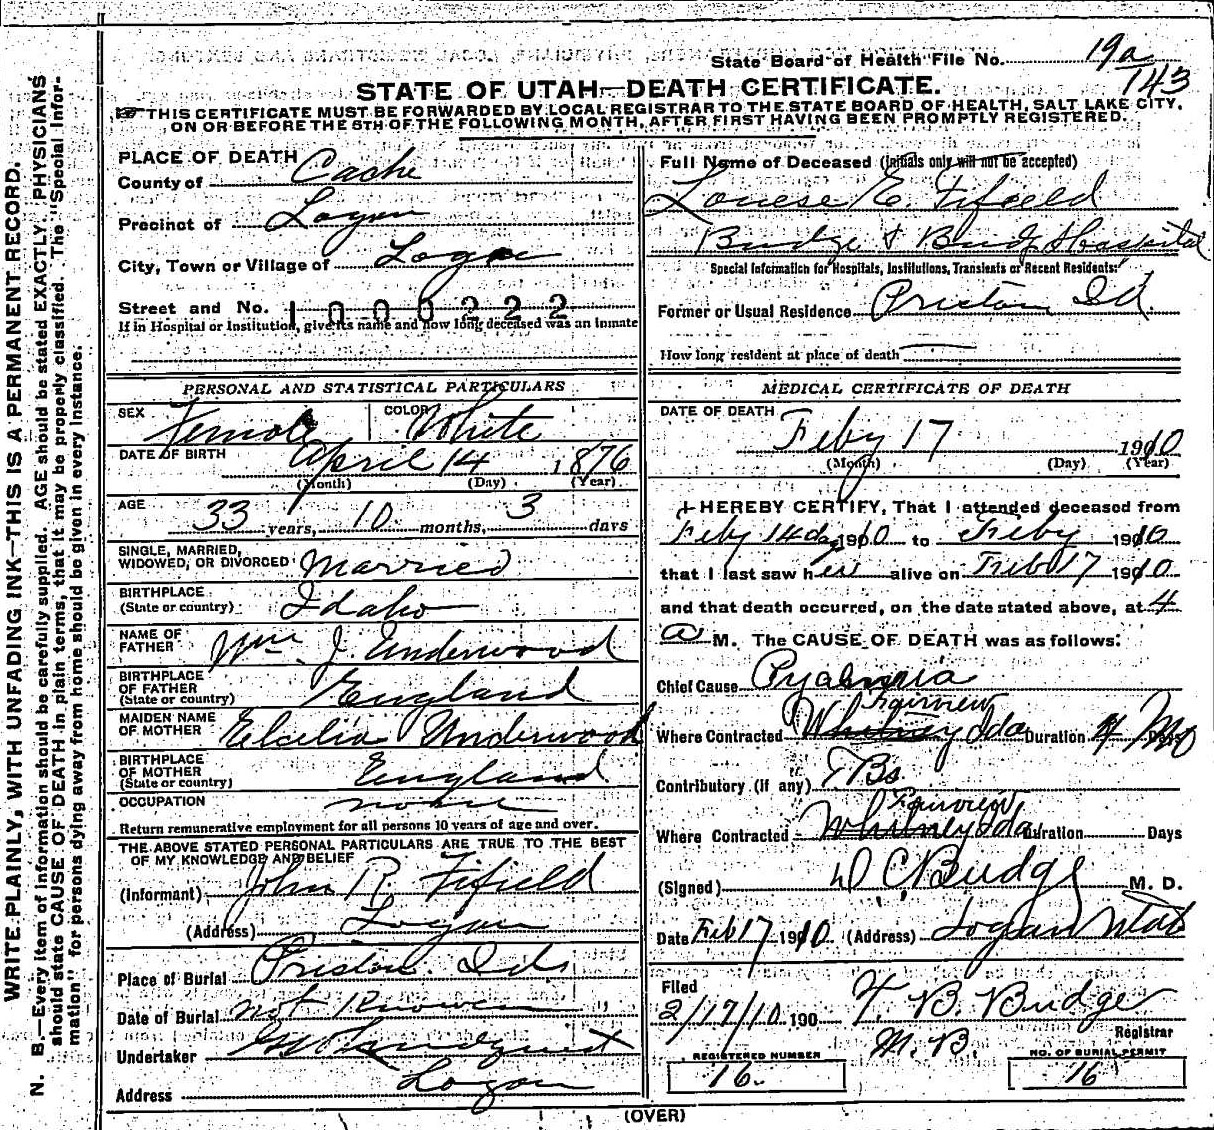 State Board of Health File No. 19a
143
STATE OF UTAH—DEATH CERTIFICATE.
THIS CERTIFICATE MUST BE FORWARDED BY LOCAL REGISTRAR TO THE STATE BOARD OF HEALTH, SALT LAKE CITY,
ON OR BEFORE THE 5TH OF THE FOLLOWING MONTH, AFTER FIRST HAVING BEEN PROMPTLY REGISTERED.
WRITE PLAINLY, WITH UNFADING INK—THIS IS A PERMANENT RECORD.
N. B.—Every item of information should be carefully supplied. AGE should be stated EXACTLY. PHYSICIANS
should state CAUSE OF DEATH in plain terms, that it may be properly classified. The "Special Infor-
mation" for persons dying away from home should be given in every instance.
PLACE OF DEATH
County of Cache
Precinct of Logan
City, Town or Village of Logan
Street and No. 1000222
If in Hospital or Institution, give its name and how long deceased was an inmate
PERSONAL AND STATISTICAL PARTICULARS
SEX Female COLOR White
DATE OF BIRTH April 14 1876
(Month) (Day) (Year)
AGE 33 years, 10 months, 3 days
SINGLE, MARRIED,
WIDOWED, OR DIVORCED Married
BIRTHPLACE
(State or country) Idaho
NAME OF
FATHER Wm. J. Underwood
BIRTHPLACE
OF FATHER
(State or country) England
MAIDEN NAME
OF MOTHER Underwood
BIRTHPLACE
OF MOTHER
(State or country) England
OCCUPATION none
Return remunerative employment for all persons 10 years of age and over.
THE ABOVE STATED PERSONAL PARTICULARS ARE TRUE TO THE BEST
OF MY KNOWLEDGE AND BELIEF
(Informant) John R. Fifield
(Address) Logan
Place of Burial Preston. Ida
Date of Burial not Known
Undertaker Lundquist
Address Logan
Full Name of Deceased (Initials only will not be accepted)
Louese E. Fifield
Budge & Budge Hospital
Special Information for Hospitals, Institutions, Transients or Recent Residents:
Former or Usual Residence Preston Id.
How long resident at place of death
MEDICAL CERTIFICATE OF DEATH
DATE OF DEATH Feby 17 1910
(Month) (Day) (Year)
I HEREBY CERTIFY, That I attended deceased from
Feby 14 1910 to Feby 1910
that I last saw her alive on Feb 17 1910
and that death occurred, on the date stated above, at 4
a M. The CAUSE OF DEATH was as follows:
Chief Cause Pyaemia
Fairview
Where Contracted Whitney Ida Duration 4 Mo Days
Contributory (if any) TBs
Fairview
Where Contracted Whitney Ida Duration Days
(Signed) D C Budge M. D.
Date Feb 17 1910 (Address) Logan Utah
Filed
2/17/10 190 T. B. Budge
Registrar
REGISTERED NUMBER
16.
NO. OF BURIAL PERMIT
16
(OVER)